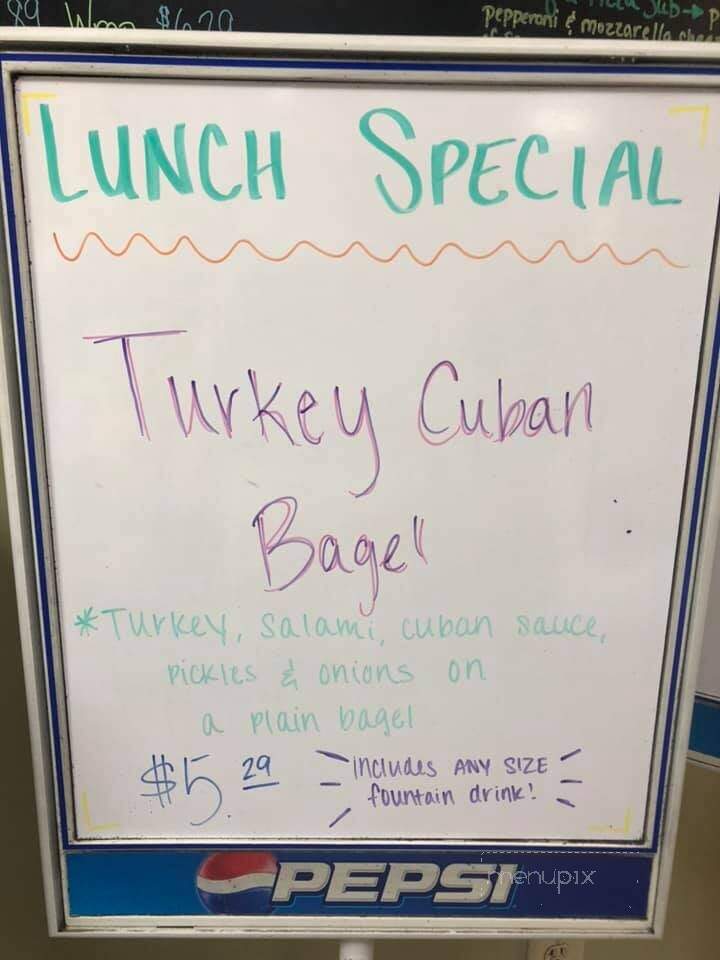 $6.29
Sub→
pepperoni & mozzarella
LUNCH SPECIAL
Turkey Cuban
Bagel
*Turkey, salami, cuban sauce,
pickles & onions on
a plain bagel
$5.29
Includes ANY SIZE
fountain drink!
PEPSI
menupix